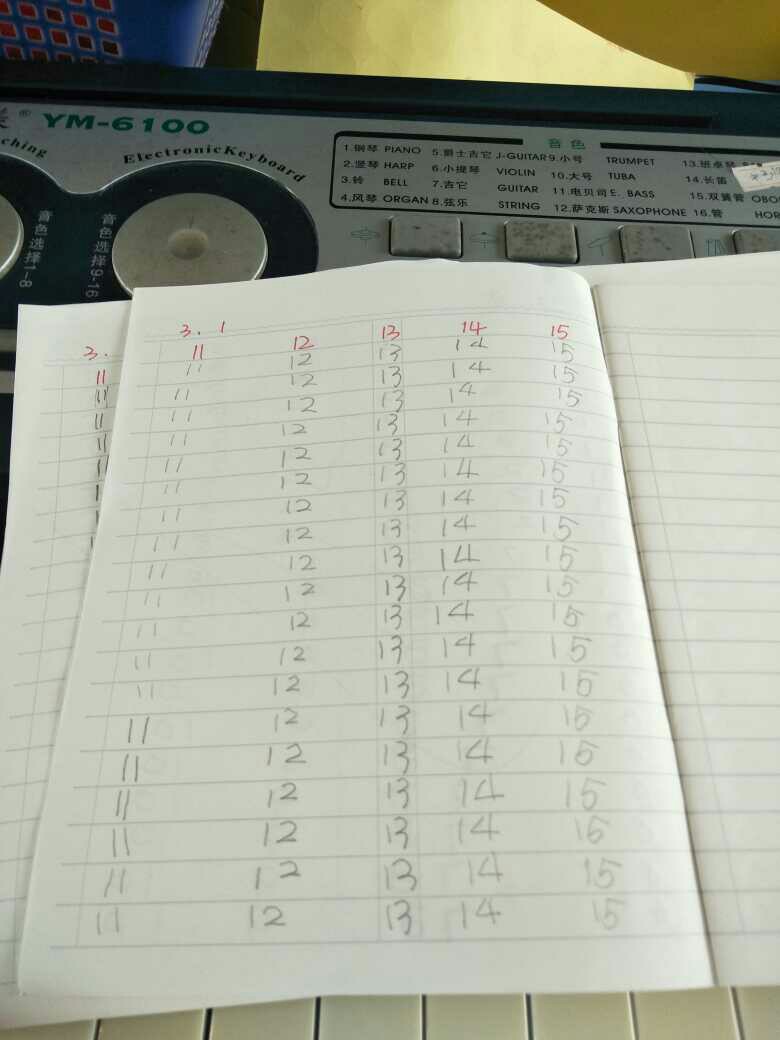 ® YM-6100
ching
ElectronicKeyboard
音色
1.钢琴 PIANO 5.爵士吉它 J-GUITAR 9.小号 TRUMPET 13.班卓琴
2.竖琴 HARP 6.小提琴 VIOLIN 10.大号 TUBA 14.长笛
3.铃 BELL 7.吉它 GUITAR 11.电贝司 E. BASS 15.双簧管 OBO
4.风琴 ORGAN 8.弦乐 STRING 12.萨克斯 SAXOPHONE 16.管 HOR
音色选择1-8
音色选择9-16
3. 1
11 12 13 14 15
11 12 13 14 15
11 12 13 14 15
11 12 13 14 15
11 12 13 14 15
11 12 13 14 15
11 12 13 14 15
11 12 13 14 15
11 12 13 14 15
11 12 13 14 15
11 12 13 14 15
11 12 13 14 15
11 12 13 14 15
11 12 13 14 15
11 12 13 14 15
11 12 13 14 15
11 12 13 14 15
11 12 13 14 15
11 12 13 14 15
11 12 13 14 15
3.
11
11
11
11